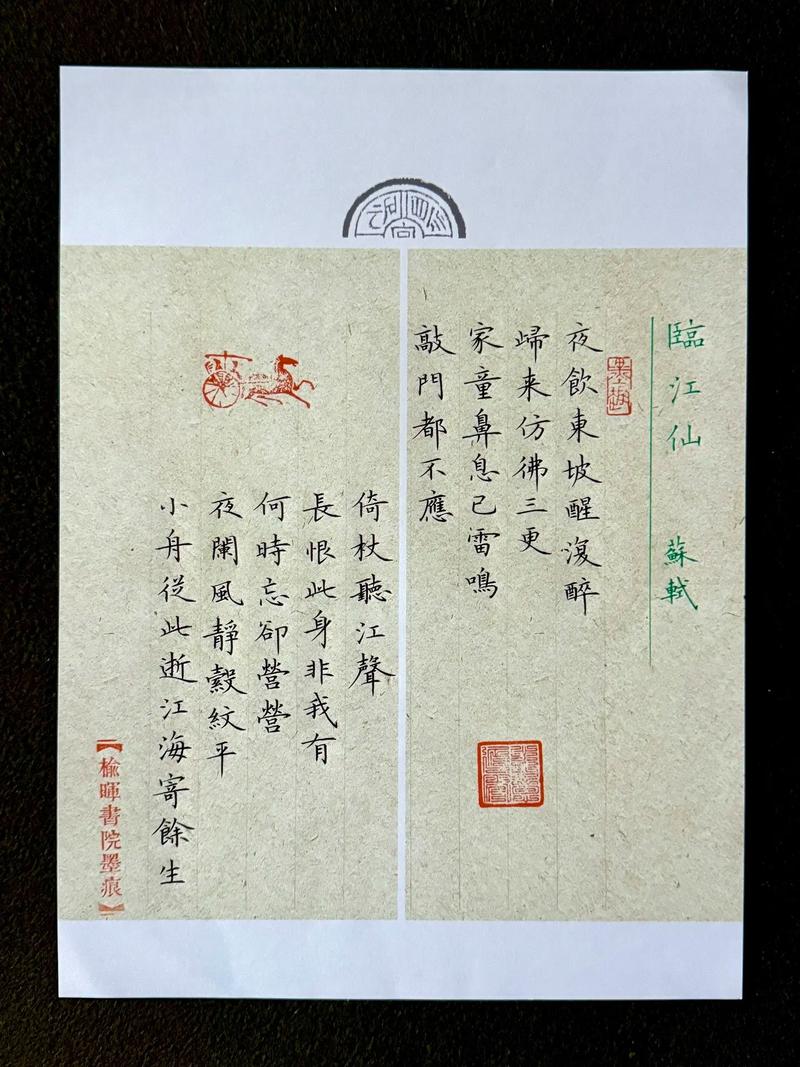 臨江仙 蘇軾
夜飲東坡醒復醉
歸来仿彿三更
家童鼻息已雷鳴
敲門都不應
倚杖聽江聲
長恨此身非我有
何時忘卻營營
夜闌風靜縠紋平
小舟從此逝江海寄餘生
【榆暉書院墨痕】